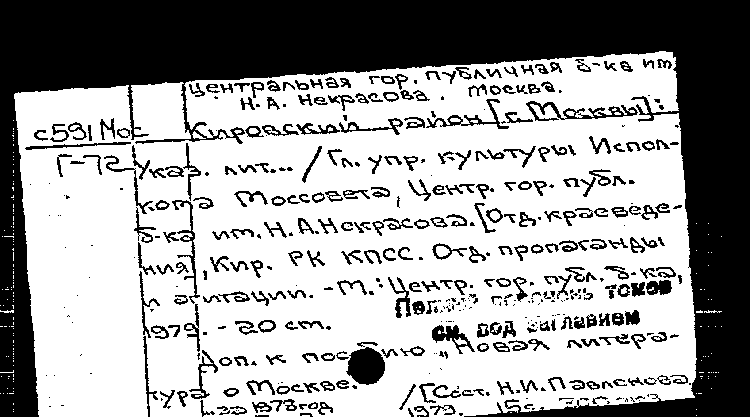 Центральная гор. публичная б-ка им.
Н.А. Некрасова. Москва.
с591Мос Кировский район [г. Москвы]:
Г-72 Указ. лит... / Гл. упр. культуры Испол-
кома Моссовета, Центр. гор. публ.
б-ка им. Н.А. Некрасова. [Отд. краеведе-
ния], Кир. РК КПСС. Отд. пропаганды
и агитации. - М.: Центр. гор. публ. б-ка,
Полный перечень томов
1979. - 20 см. см. под заглавием
Доп. к пособию „Новая литера-
тура о Москве. / [Сост. Н.И. Павленкова
за 1978 год 1979. 15с.